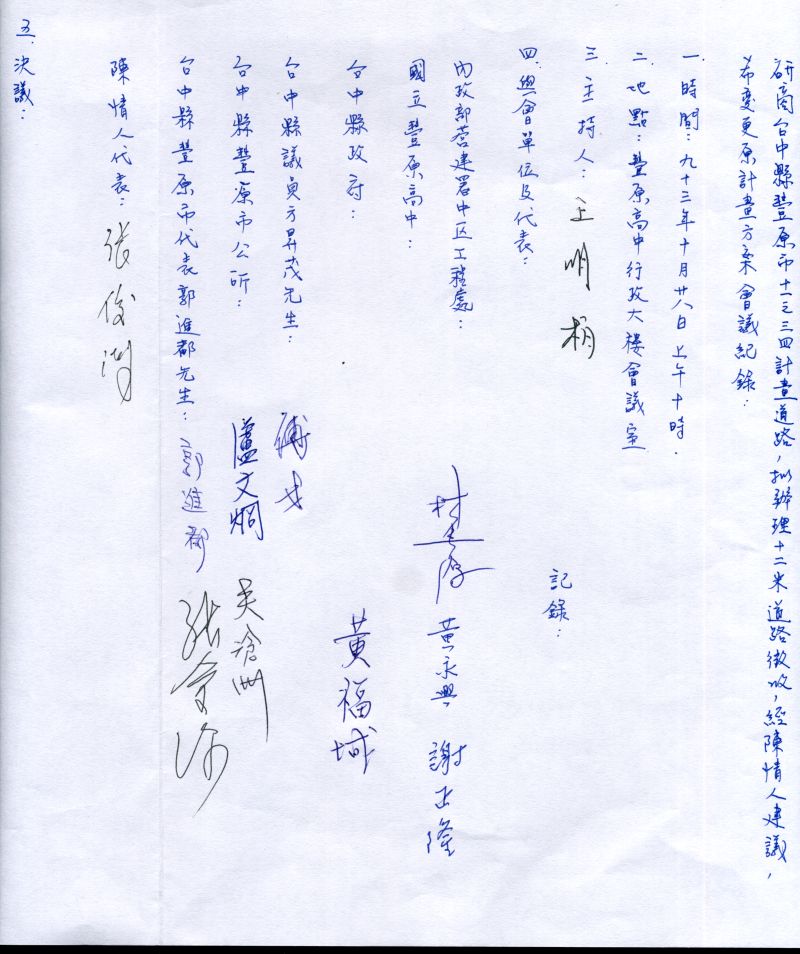 研商台中縣豐原市十一之三四計畫道路，拟辦理十二米道路徵收，經陳情人建議，
希變更原計畫方案會議紀錄：
一、時間：九十三年十月廿八日上午十時．
二、地點：豐原高中行政大樓會議室
三、主持人：王明
記錄：
四、與會單位及代表：
內政部營建署中区工務處：
國立豐原高中： 黃永興 謝正隆
台中縣政府： 黃福城
台中縣議員方昇茂先生：
台中縣豐原市公所： 盧文炯 吳滄洲
台中縣豐原市代表郭進都先生： 郭進都
陳情人代表： 張俊
五、決議：